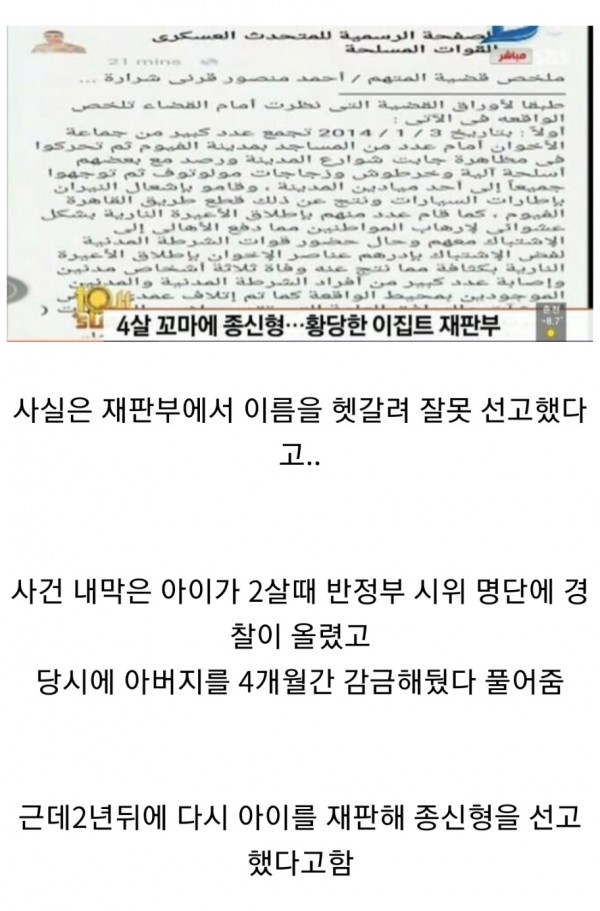 الصفحة الرسمية للمتحدث العسكرى
للقوات المسلحة
مباشر
21 mins
ملخص قضية المتهم / أحمد منصور قرنى شرارة ...
طبقا لأوراق القضية التى نظرت أمام القضاء تلخص
الواقعه فى الآتى :
أولاً : بتاريخ 2014 / 1 / 3 تجمع عدد كبير من جماعة
الأخوان أمام عدد من المساجد بمدينة الفيوم ثم تحركوا
فى مظاهرة جابت شوارع المدينة ورصد مع بعضهم
أسلحة آلية وخرطوش وزجاجات مولوتوف ثم توجهوا
جميعاً إلى أحد ميادين المدينة ، وقامو بإشعال النيران
بإطارات السيارات ونتج عن ذلك قطع طريق القاهرة
الفيوم ، كما قام عدد منهم بإطلاق الأعيرة النارية بشكل
عشوائى لإرهاب المواطنين مما دفع الأهالى إلى
الإشتباك معهم وحال حضور قوات الشرطة المدنية
لفض الإشتباك بادرهم عناصر الإخوان بإطلاق الأعيرة
النارية بكثافة مما نتج عنه وفاة ثلاثة أشخاص مدنين
وإصابة عدد كبير من أفراد الشرطة المدنية والمدنين
الموجودين بمحيط الواقعة كما تم إتلاف عدد
4살 꼬마에 종신형…황당한 이집트 재판부
춘천
-8.7˚
사실은 재판부에서 이름을 헷갈려 잘못 선고했다
고..
사건 내막은 아이가 2살때 반정부 시위 명단에 경
찰이 올렸고
당시에 아버지를 4개월간 감금해뒀다 풀어줌
근데2년뒤에 다시 아이를 재판해 종신형을 선고
했다고함